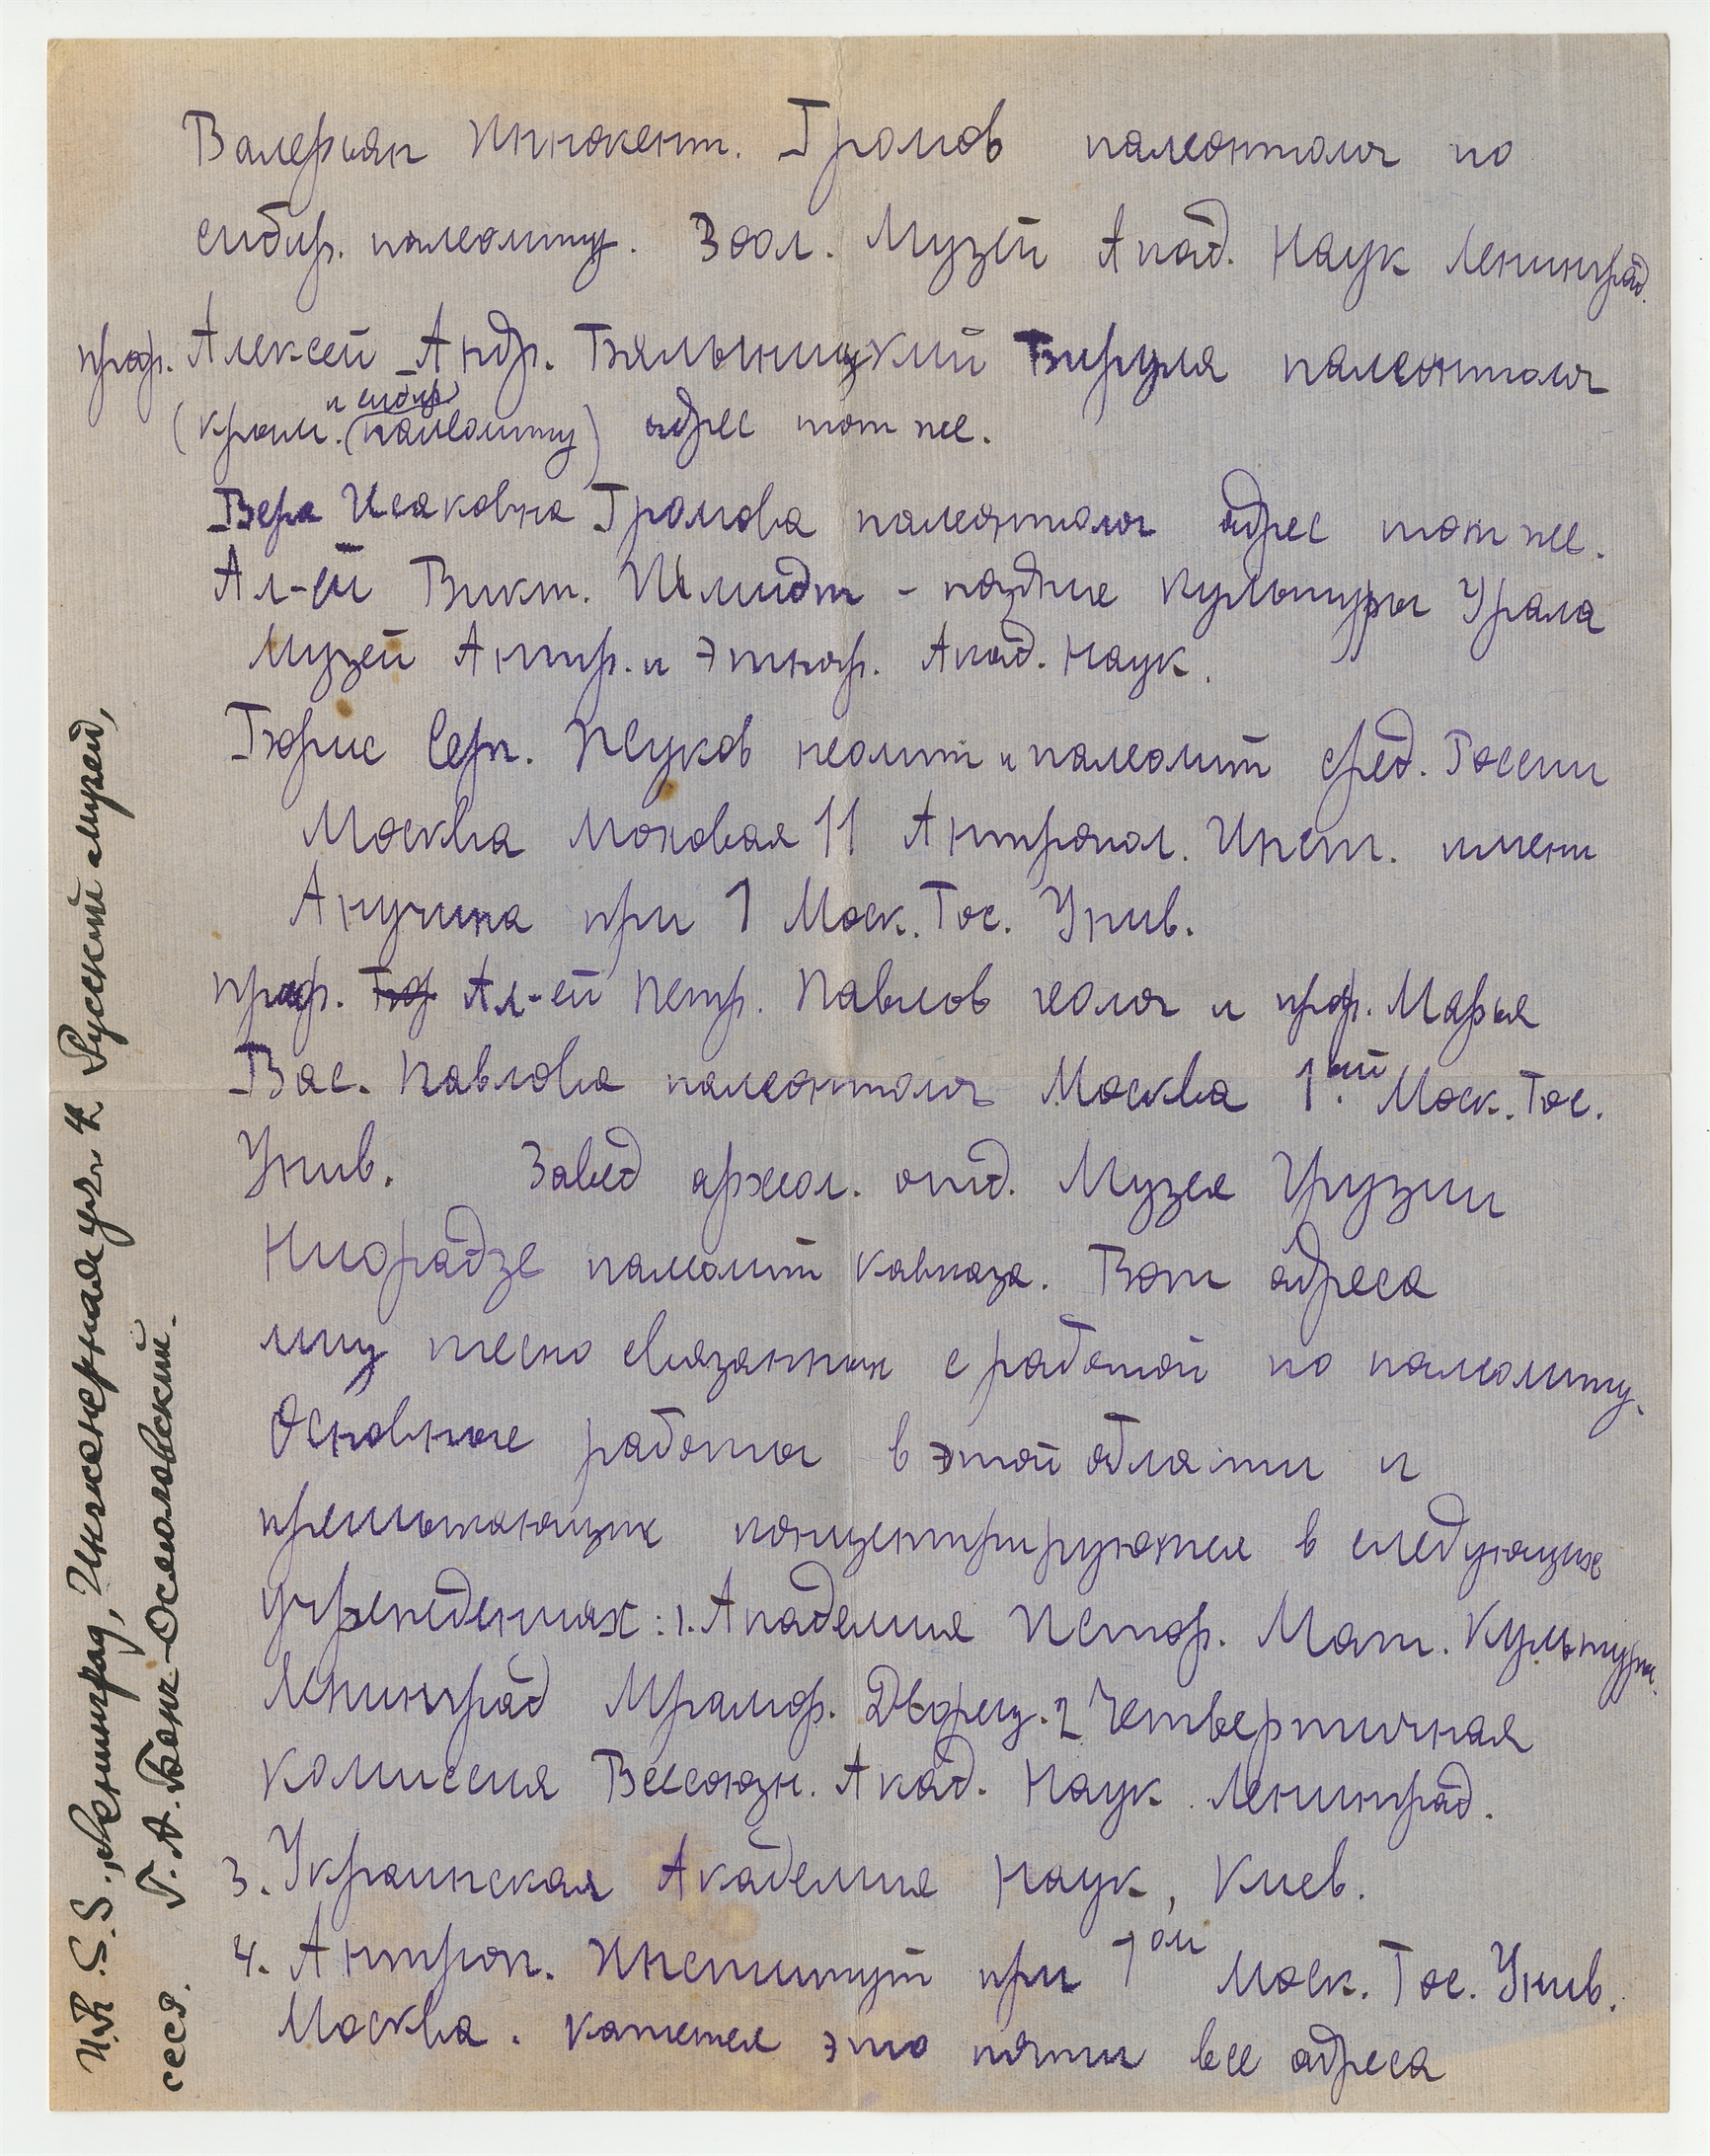 Валерьян Иннокент. Громов палеонтолог по
сибир. палеолиту. Зоол. Музей Акад. Наук Ленинград.
проф. Алексей Андр. Бялыницкий Бируля палеонтолог
(крым. и сибир. палеолиту) адрес тот же.
Вера Исаковна Громова палеонтолог адрес тот же.
Ал-ей Викт. Шмидт - поздние культуры Урала
Музей Антр. и Этногр. Акад. Наук.
Борис Серг. Жуков неолит и палеолит сред. России
Москва Моховая 11 Антропол. Инст. имени
Анучина при 1 Моск. Гос. Унив.
проф. Ал-ей Петр. Павлов геолог и проф. Марья
Вас. Павлова палеонтолог Москва 1.ый Моск. Гос.
Унив. Завед археол. отд. Музея Грузии
Ниорадзе палеолит Кавказа. Вот адреса
лиц тесно связанных с работой по палеолиту.
Основные работы в этой области и
прилегающих концентрируются в следующих
учреждениях: 1. Академия Истор. Мат. Культуры.
Ленинград Мрамор. Дворец. 2 Четвертичная
комиссия Всесоюзн. Акад. Наук Ленинград.
3. Украинская Академия Наук, Киев.
4. Антроп. Институт при 1ом Моск. Гос. Унив.
Москва. Кажется это почти все адреса
U.R.S.S., Ленинград, Инженерная ул. 4 Русский музей,
СССР. Г. А. Бонч-Осмоловский.